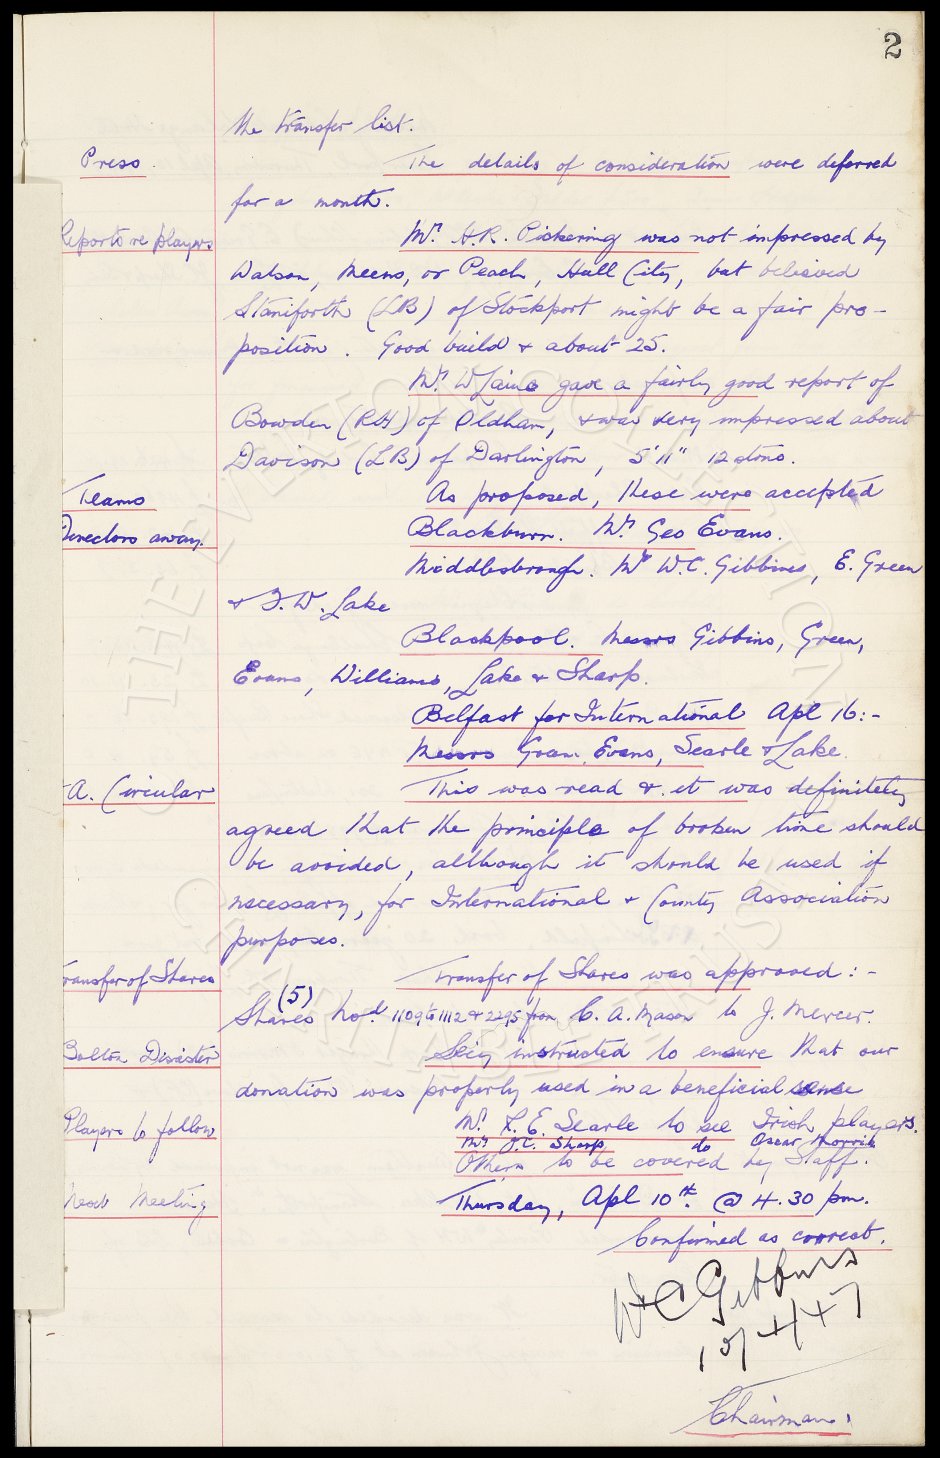 2
the transfer list.
Press. The details of consideration were deferred
for a month.
Reports re players Mr. H.R. Pickering was not impressed by
Watson, Meens, or Peach, Hull City, but believed
Staniforth (LB) of Stockport might be a fair pro-
position. Good build & about 25.
Mr. W Laine gave a fairly good report of
Bowden (RH) of Oldham, & was very impressed about
Davison (LB) of Darlington, 5'11" 12 stons.
Teams As proposed, these were accepted
Directors away. Blackburn. Mr. Geo Evans.
Middlesbrough. Mr W.C. Gibbins, E. Green
& F. W. Lake
Blackpool. Messrs Gibbins, Green,
Evans, Williams, Lake & Sharp.
Belfast for International Apl 16:-
Messrs Evans, Searle & Lake.
A. Circular This was read & it was definitely
agreed that the principle of broken time should
be avoided, although it should be used if
necessary, for International & County Association
purposes.
Transfer of Shares Transfer of Shares was approved:-
(5)
Shares Nod. 1109 to 1112 & 2295 from C. A. Mason to J. Mercer.
Bolton Disaster Secy instructed to ensure that our
donation was properly used in a beneficial sense
Players to follow Mr. R. E. Searle to see Irish players.
Mr J.C. Sharp do Oscar Morris
Others to be covered by Staff.
Next Meeting Thursday, Apl 10th. @ 4.30 pm.
Confirmed as correct.
W C Gibbins
10/4/47
Chairman.
THE EVERTON COLLECTION
CHARITABLE TRUST